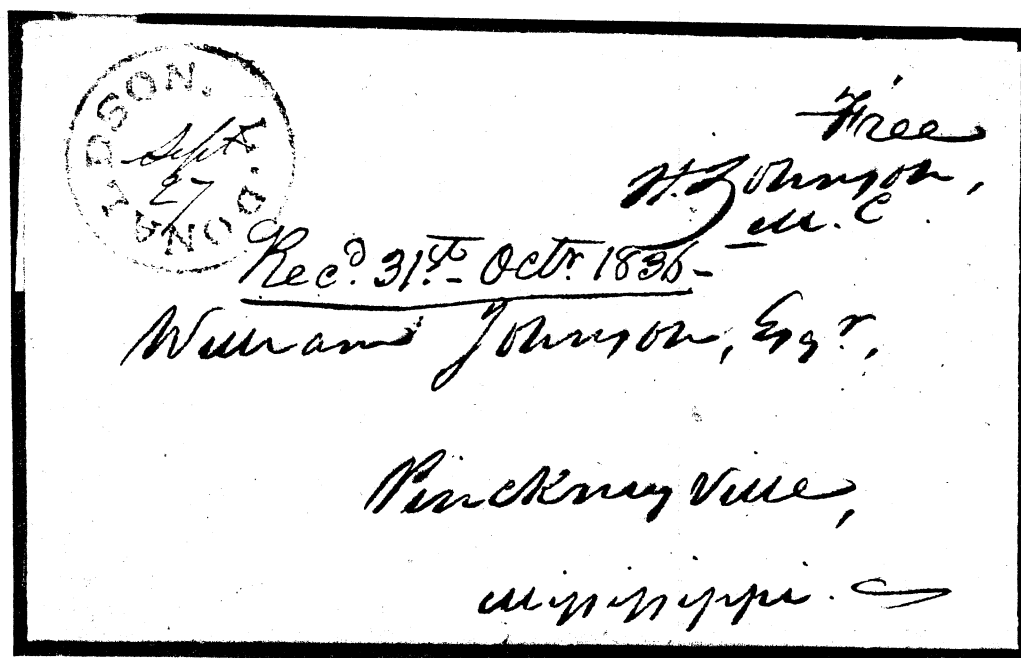 DONALDSON. L.
Sept
27
Free
H. Johnson,
M. C.
Recd. 31st. - Octr. 1836 -
William Johnson, Esqr.,
Pinckneyville,
Mississippi.